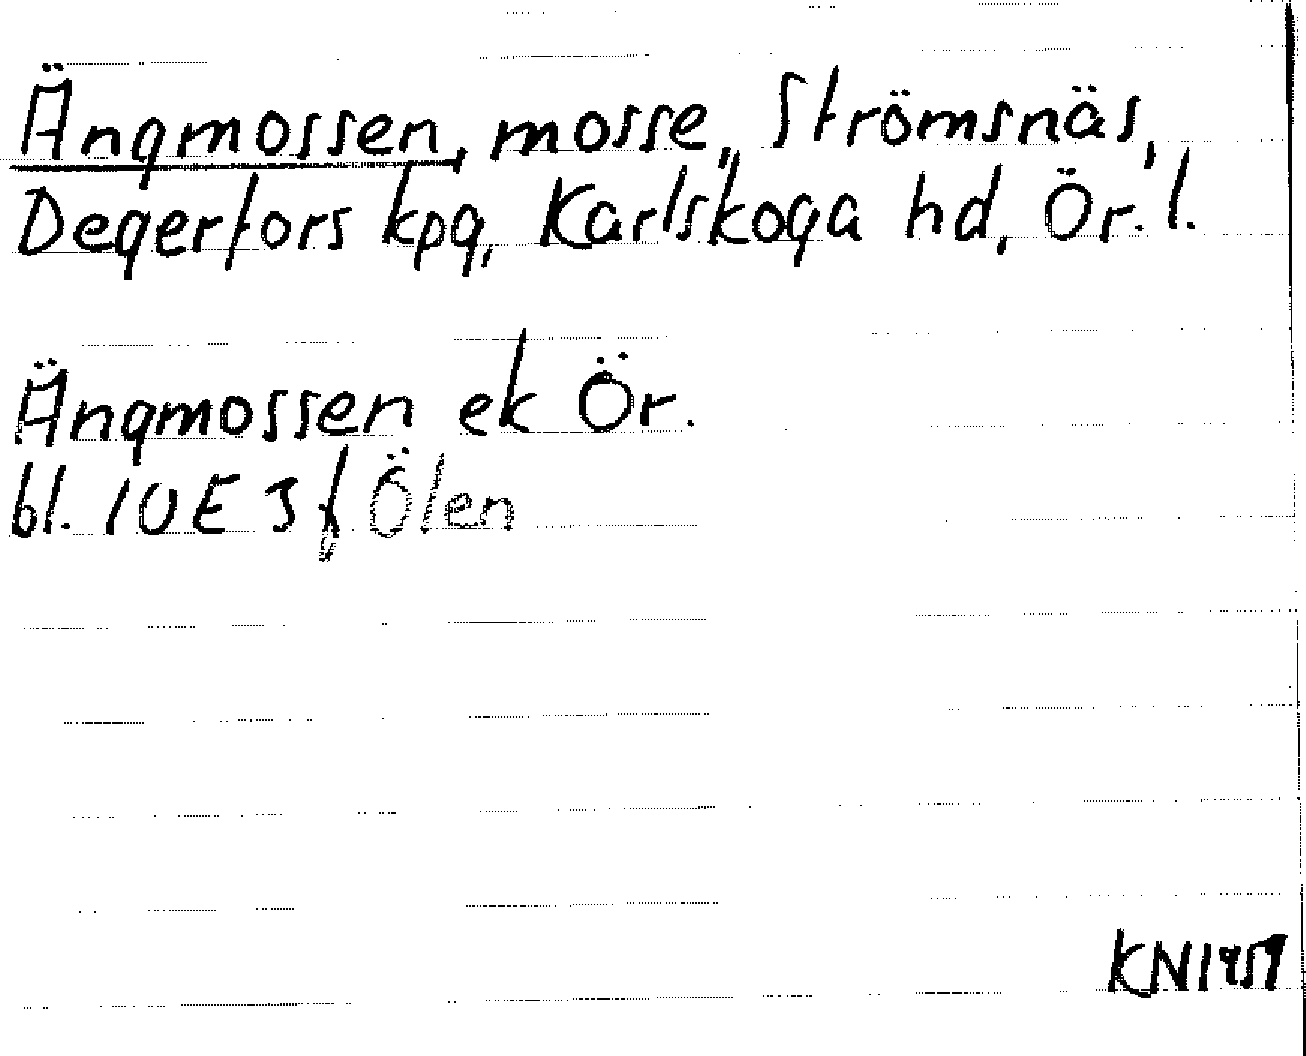 Ängmossen, mosse, Strömsnäs,
Degerfors kpg, Karlskoga hd, Ör. l.
Ängmossen ek Ör.
bl. 10E 3f Ölen